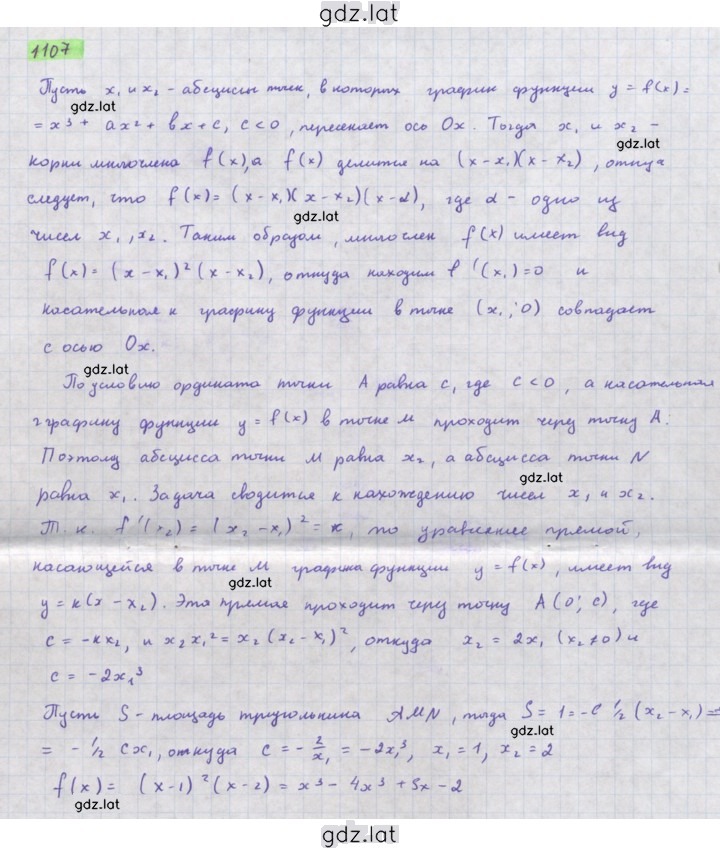 gdz.lat
1107
Пусть x₁ и x₂ - абсциссы точек, в которых график функции y = f(x) =
gdz.lat
= x³ + ax² + bx + c, c < 0, пересекает ось Ox. Тогда x₁ и x₂ -
gdz.lat
корни многочлена f(x), а f(x) делится на (x - x₁)(x - x₂), откуда
следует, что f(x) = (x - x₁)(x - x₂)(x - α), где α - одно из
gdz.lat
чисел x₁, x₂. Таким образом, многочлен f(x) имеет вид
f(x) = (x - x₁)²(x - x₂), откуда находим f'(x₁) = 0 и
касательная к графику функции в точке (x₁; 0) совпадает
с осью Ox.
gdz.lat
По условию ордината точки A равна c, где c < 0, а касательная
графику функции y = f(x) в точке M проходит через точку A.
Поэтому абсцисса точки M равна x₂, а абсцисса точки N
gdz.lat
равна x₁. Задача сводится к нахождению чисел x₁ и x₂.
Т. к. f'(x₂) = (x₂ - x₁)² = k, то уравнение прямой,
касающейся в точке M графика функции y = f(x), имеет вид
gdz.lat
y = k(x - x₂). Эта прямая проходит через точку A(0; c), где
c = -kx₂, и x₂x₁² = x₂(x₂ - x₁)², откуда x₂ = 2x₁ (x₂ ≠ 0) и
c = -2x₁³
Пусть S - площадь треугольника AMN, тогда S = 1 = -c 1/2 (x₂ - x₁) =
gdz.lat
= - 1/2 cx₁, откуда c = - 2/x₁ = -2x₁³, x₁ = 1, x₂ = 2
f(x) = (x - 1)²(x - 2) = x³ - 4x³ + 5x - 2
gdz.lat
gdz.lat